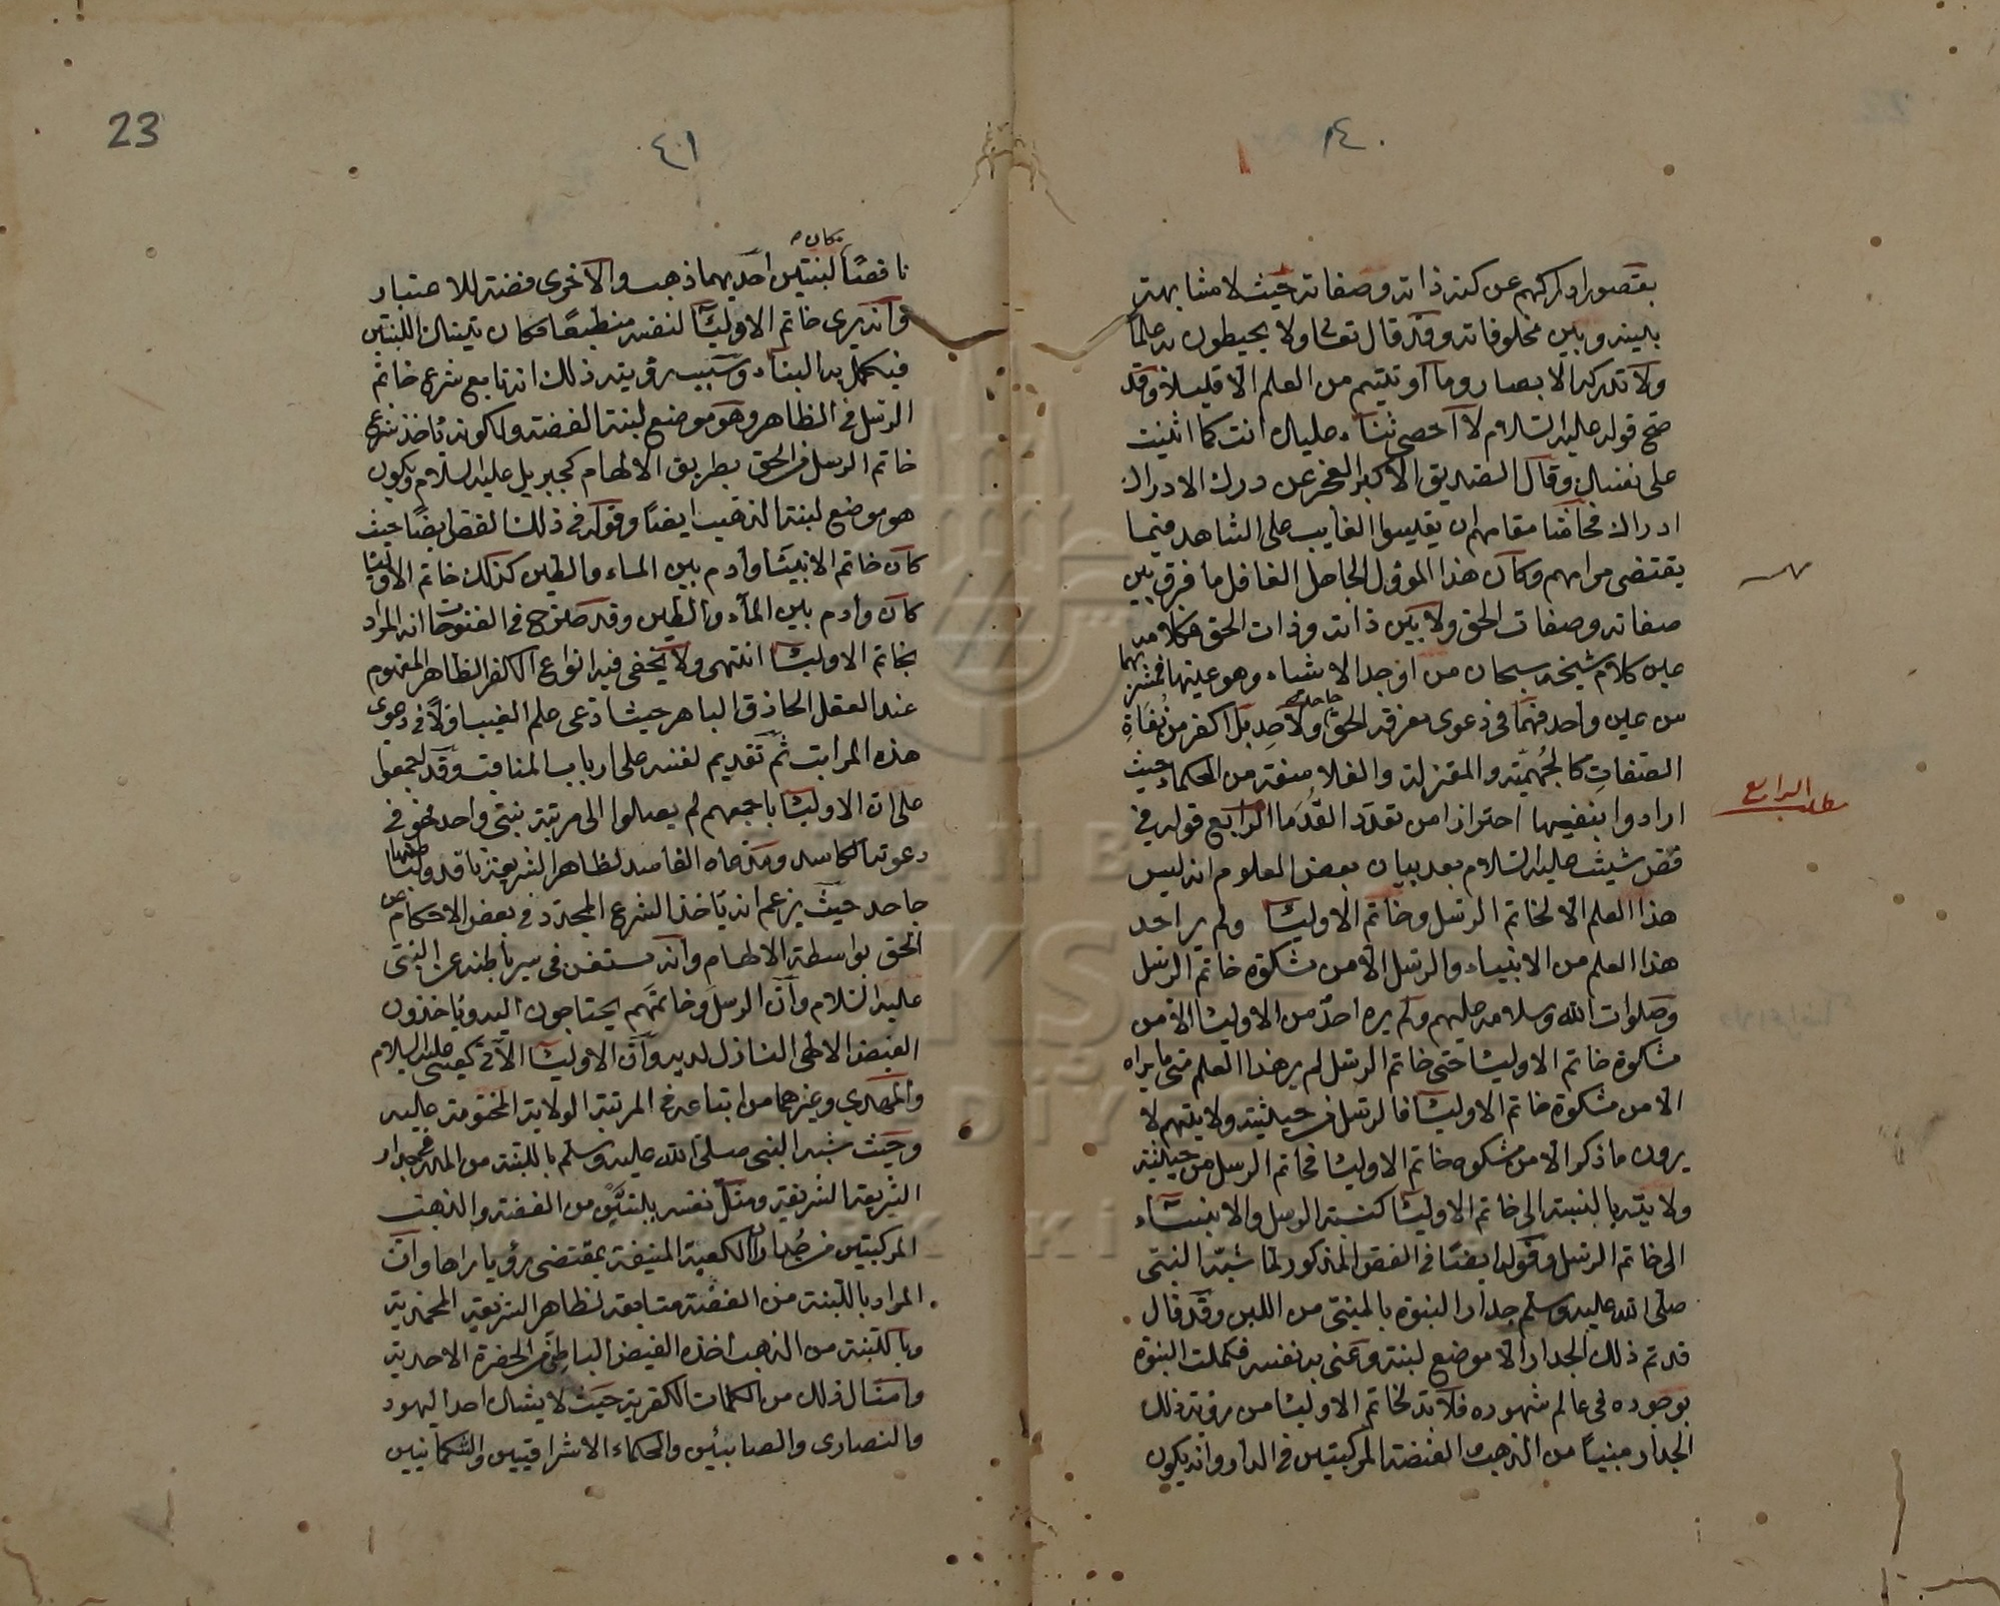 ٤٠
بقصور ادراكهم عن كنه ذاته وصفاته حيث لا مشابهة
بينه وبين مخلوقاته وقد قال تعالى ولا يحيطون به علما
ولا تدركه الابصار وما اوتيتم من العلم الا قليلا وقد
صح قوله عليه السلام لا احصى ثناء عليك انت كما اثنيت
على نفسك وقال الصديق الاكبر العجز عن درك الادراك
ادراك فحاشا مقامهم ان يقيسوا الغايب على الشاهد فيما
يقتضى مرامهم وكان هذا المؤول الجاهل الغافل ما فرق بين
صفاته وصفات الحق ولا بين ذاته وذات الحق فكلامه
عين كلام شيخه سبحان من اوجد الاشياء وهو عينها فمشربهما
من عين واحد فهما في دعوى معرفة الحق ولاحد جاحد بل اكفر من نفاة
الصفات كالجهمية والمعتزلة والفلاسفة من الحكماء حيث
ارادوا بنفيها احترازا من تعدد القدما الرابع قوله في
فص شيث عليه السلام بعد بيان بعض العلوم انه ليس
هذا العلم الا لخاتم الرسل وخاتم الاوليا ولم ير احد
هذا العلم من الانبياء والرسل الا من مشكوة خاتم الرسل
وصلوات الله وسلامه عليهم ولم يره احد من الاوليا الا من
مشكوة خاتم الاوليا حتى خاتم الرسل لم ير هذا العلم متى ما يراه
الا من مشكوة خاتم الاوليا فالرسل من حيثية ولايتهم لا
يرون ما ذكر الا من مشكوه خاتم الاوليا فخاتم الرسل من حيثية
ولايته بالنسبة الى خاتم الاوليا كنسبة الرسل والانبياء
الى خاتم الرسل وقوله ايضا في الفص المذكور لما شبه النبى
صلى الله عليه وسلم جدار النبوة بالمبنى من اللبن وقد قال
قد تم ذلك الجدار الا موضع لبنة وعنى به نفسه فكملت النبوة
بوجوده في عالم شهوده فلا بد لخاتم الاوليا من رؤية ذلك
الجدار مبنيا من الذهب والفضة المركبتين في الدار وانه يكون
الرابع
٤١
23
مكان
ناقصا لبنتين احديهما ذهب والاخرى فضة للاعتبار
وانه يرى خاتم الاوليا لنفسه منطبعا مكان تينك اللبنتين
فيكمل به البناء وسبب رؤيته ذلك انه تابع شرع خاتم
الرسل في الظاهر وهو موضع لبنة الفضة ولكونه ياخذ شرع
خاتم الرسل من الحق بطريق الالهام كجبريل عليه السلام ويكون
هو موضع لبنة الذهب ايضا وقوله في ذلك الفص ايضا حيث
كان خاتم الانبيا وادم بين الماء والطين كذلك خاتم الاوليا
كان وادم بين الماء والطين وقد صرح في الفتوحات انه المراد
بخاتم الاوليا انتهى ولا يخفى فيه انواع الكفر الظاهر المفهوم
عند العقل الحاذق الباهر حيث ادعى علم الغيب اولا في دعوى
هذه المراتب ثم تقديم نفسه على ارباب المناقب وقد اجمعوا
على ان الاوليا باجمعهم لم يصلوا الى مرتبة نبى واحد فهو في
دعوته الكاسد ومدعاه الفاسد لظاهر الشريعة ناقد ولباطنها
جاحد حيث يزعم انه ياخذ الشرع المجدد في بعض الاحكام عن
الحق بواسطة الالهام وانه مستغن في سير باطنه عن النبى
عليه السلام وان الرسل وخاتمهم يحتاجون اليه وياخذون
الفيض الالهى النازل لديه وان الاوليا الآتي كعيسى عليه السلام
والمهدي وغيرهما من اتباعه في المرتبة الولاية المختومة عليه
وحيث شبه النبى صلى الله عليه وسلم باللبنة من المدر في جدار
الشريعة الشريفة ومثل نفسه بلبنتين من الفضة والذهب
المركبتين من جدار الكعبة المنيفة بمقتضى رؤيا راها وان
المراد باللبنة من الفضة متابعة لظاهر الشريعة المحمدية
وباللبنة من الذهب اخذه الفيض الباطن من الحضرة الاحدية
وامثال ذلك من الكلمات الكفرية حيث لا يشك احد اليهود
والنصارى والصابئين والحكماء الاشراقيين والشكمانيين